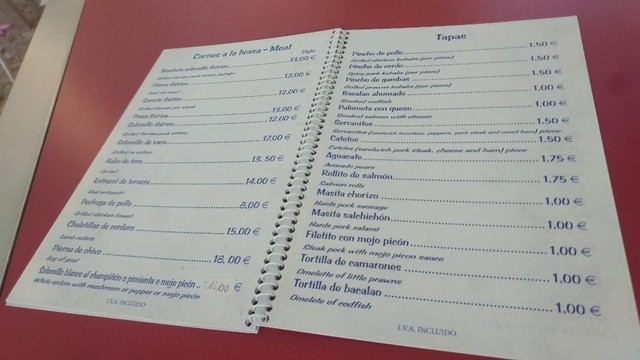 Carnes a la brasa - Meat
Plato
Brocheta solomillo ibérico 13,00 €
Grilled iberian pork sirloin kebabs
Pluma ibérica 13,00 €
Secreto ibérico 12,00 €
Grilled iberian pork steak
Presa ibérica 13,00 €
Solomillo ibérico 12,00 €
Grilled iberian pork sirloin
Solomillo de vaca 17,00 €
Grilled ox sirloin
Rabo de toro 13,50 €
Entrecot de ternera 14,00 €
Veal entrecote
Pechuga de pollo 8,00 €
Grilled chicken breast
Chuletillas de cordero 15,00 €
Lamb cutlets
Pierna de chivo 18,00 €
Leg of goat
Solomillo blanco al champiñón o pimienta o mojo picón .. €
White sirloin with mushroom or pepper or mojo picón
I.V.A. INCLUIDO
Tapas
Pincho de pollo 1,50 €
Grilled chicken kebabs (per piece)
Pincho de cerdo 1,50 €
Spicy pork kebabs (per piece)
Pincho de gambas 1,50 €
Grilled prawns kebabs (per piece)
Bacalao ahumado 1,00 €
Smoked codfish
Palometa con queso 1,00 €
Smoked salmon with cheese
Serranitos 1,50 €
Serranitos (sandwich tomatoe, peppers, pork steak and cured ham) piece
Catetos 1,50 €
Catetos (sandwich pork steak, cheese and ham) piece
Aguacate 1,75 €
Avocado pears
Rollito de salmón 1,75 €
Salmon rolls
Masita chorizo 1,00 €
Hards pork sausage
Masita salchichón 1,00 €
Hards pork salami
Filetito con mojo picón 1,00 €
Steak pork with mojo picon sauce
Tortilla de camarones 1,00 €
Omelette of little prawns
Tortilla de bacalao 1,00 €
Omelette of codfish
I.V.A. INCLUIDO